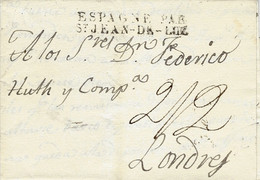 ESPAGNE PAR
St JEAN-DE-LUZ
A los Sres Dn Federico
Huth y Compa
2/2
Londres